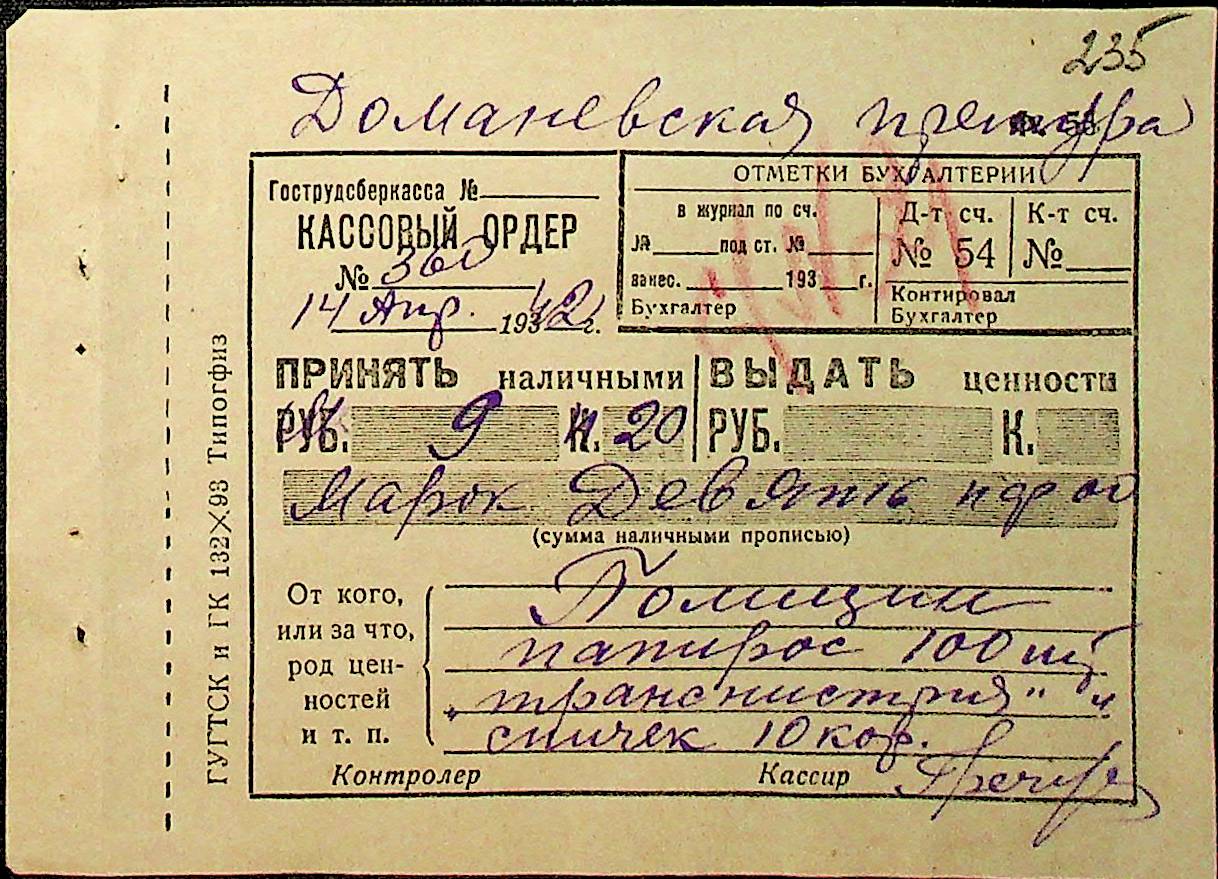 235
Доманевская претура
Ф. 58
Гострудсберкасса №
КАССОВЫЙ ОРДЕР
№ 360
14 Апр. 1942 г.
ОТМЕТКИ БУХГАЛТЕРИИ
в журнал по сч.
№ под ст. №
занес. 193 г.
Бухгалтер
Д-т сч.
№ 54
К-т сч.
№
Контировал
Бухгалтер
ПРИНЯТЬ наличными
РУБ. 9 К. 20
ВЫДАТЬ ценности
РУБ. К.
Марок Девять
(сумма наличными прописью)
От кого,
или за что,
род цен-
ностей
и т. п.
папирос 100 шт
„транснистрия" и
спичек 10 кор.
Контролер
Кассир
ГУГТСК и ГК 132×93 Типогфиз